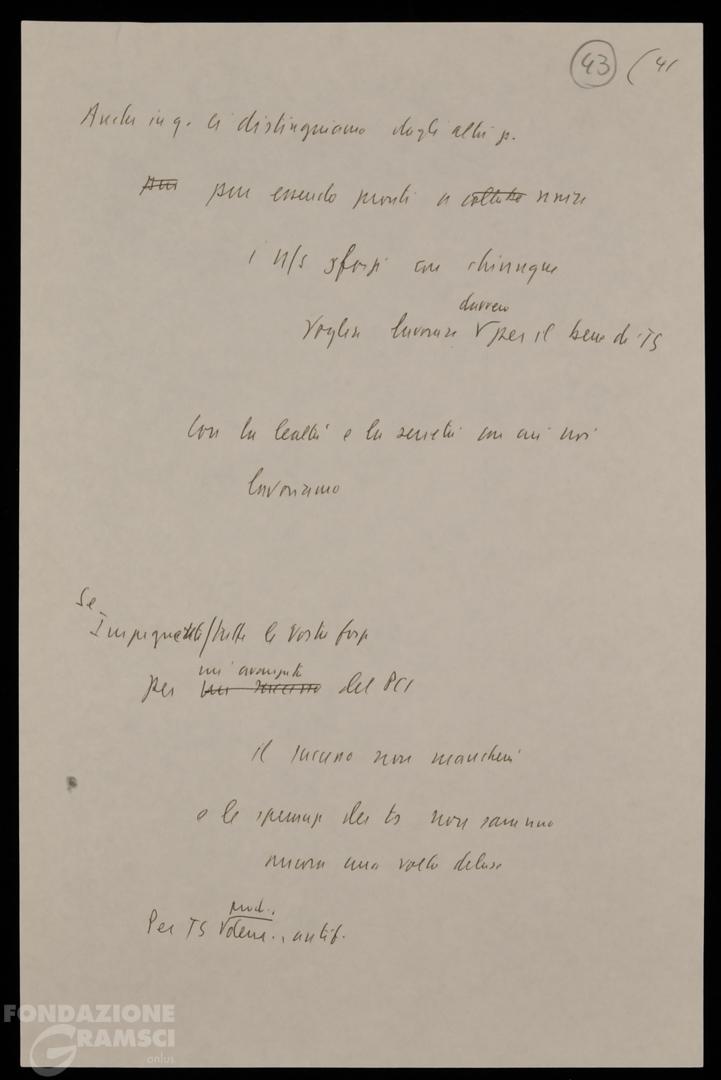 43 (41
Anche in q. ci distinguiamo dagli altri p.
pur pur essendo pronti a unire
i n/s sforzi con chiunque
davvero
voglia lavorare per il bene di TS
con la lealtà e la serietà con cui noi
lavoriamo
Se
Impegnerete/tutte le vostre forze
un'avanzata
per un successo del PCI
il successo non mancherà
e le speranze dei ts non saranno
ancora una volta deluse
Per TS dem., antif.
FONDAZIONE
GRAMSCI
onlus